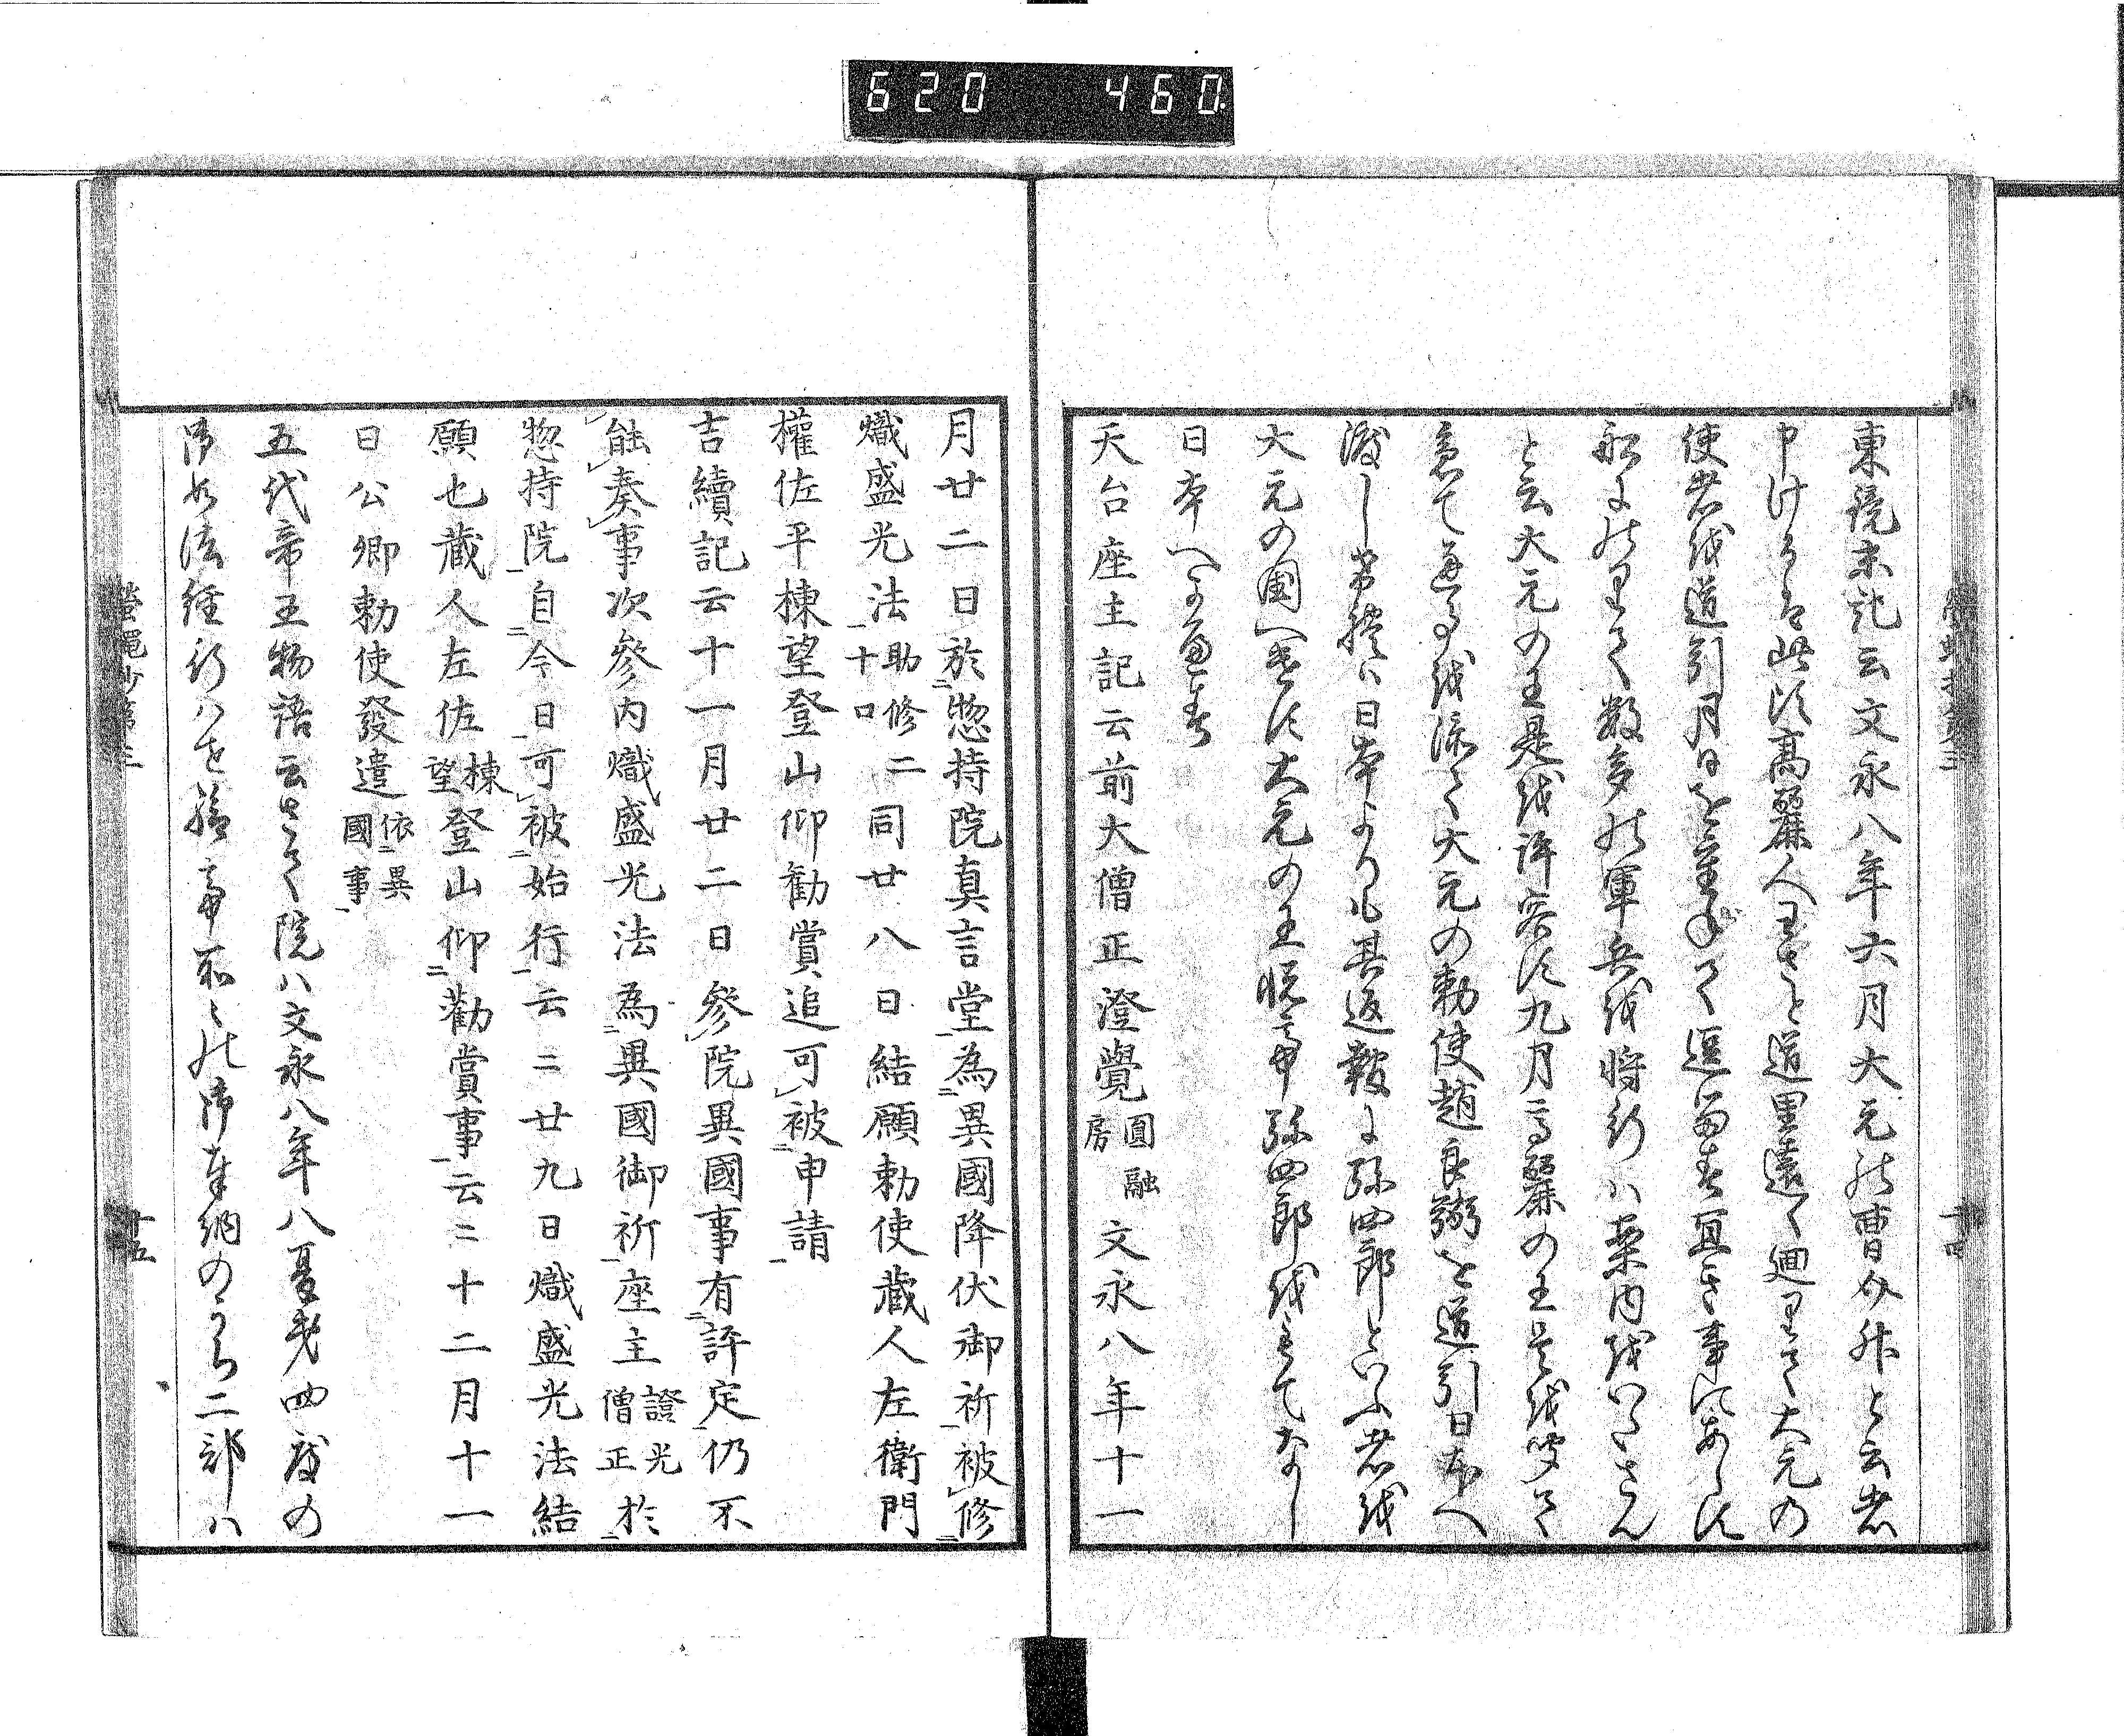 620 460.
東鏡末記云文永八年六月大元の曹介升と云者
申ける者此頃高麗人ひそかに道里遠く廻りて大元の
使者を道引月日を重ねて逗留す宜き事にあらす
船にのりて数多の軍兵を将行ハ案内をいたさん
と云大元の王是を許容す九月高麗の王是を聞て
急て通事を添て大元の勅使趙良弼を道引日本へ
渡し書持ハ日本よりも其返報に弥四郎といふ者を
大元の国へ遣す大元の王悦て弥四郎をもてなし
日本へかへす
天台座主記云前大僧正澄覺圓融房文永八年十一
月廿二日於惣持院真言堂為異國降伏御祈被修
熾盛光法助修二十口同廿八日結願勅使蔵人左衛門
權佐平棟望登山仰勸賞追可被申請
吉續記云十一月廿二日參院異國事有評定仍不
能奏事次參内熾盛光法為異國御祈座主證光僧正於
惣持院自今日可被始行云二廿九日熾盛光法結
願也蔵人左佐棟望登山仰勸賞事云二十二月十一
日公卿勅使發遣依異國事
五代帝王物語云さて院ハ文永八年八夏秋四度の
御如法経行はせ給て所々の御奉納のうち二部ハ
螢蠅抄第三
廿五